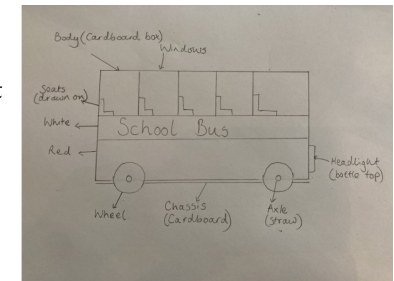 Body (Cardboard box)
Windows
Seats
(drawn on)
White
School Bus
Red
Headlight
(bottle top)
Wheel
Chassis
(Cardboard)
Axle
(straw)